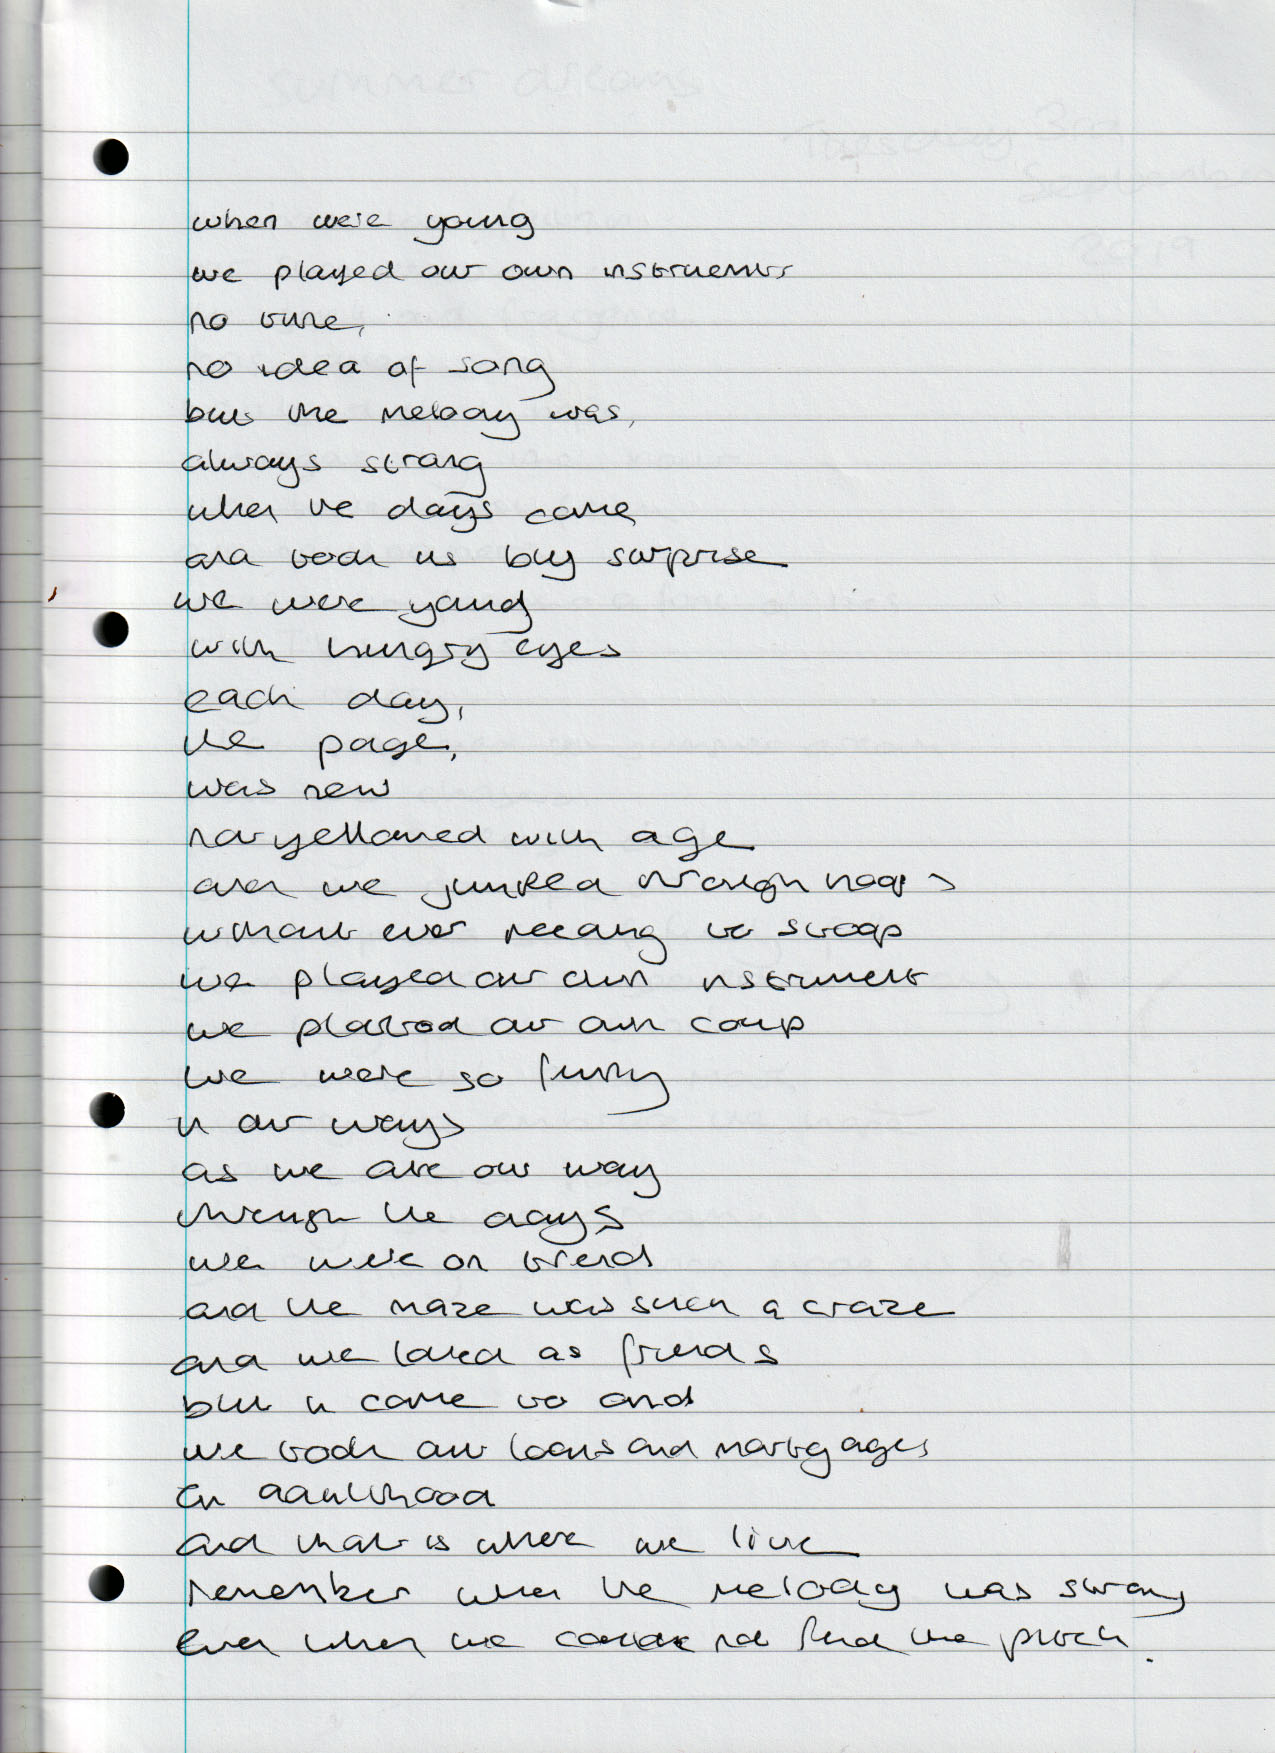 when were young
we played our own instruments
no tune,
no idea of song
but the melody was,
always strong
when the days came
and took us by surprise
we were young
with hungry eyes
each day,
the page,
was new
not yellowed with age
and we jumped through hoops
without ever needing to stoop
we played our own instrument
we plotted our own coup
we were so funny
in our ways
as we ate our way
through the days
we were on trend
and the maze was such a craze
and we loved as friends
but it came to end
we took our loans and mortgages
in adulthood
and that is where we live
remember when the melody was strong
even when we could not find the pitch.